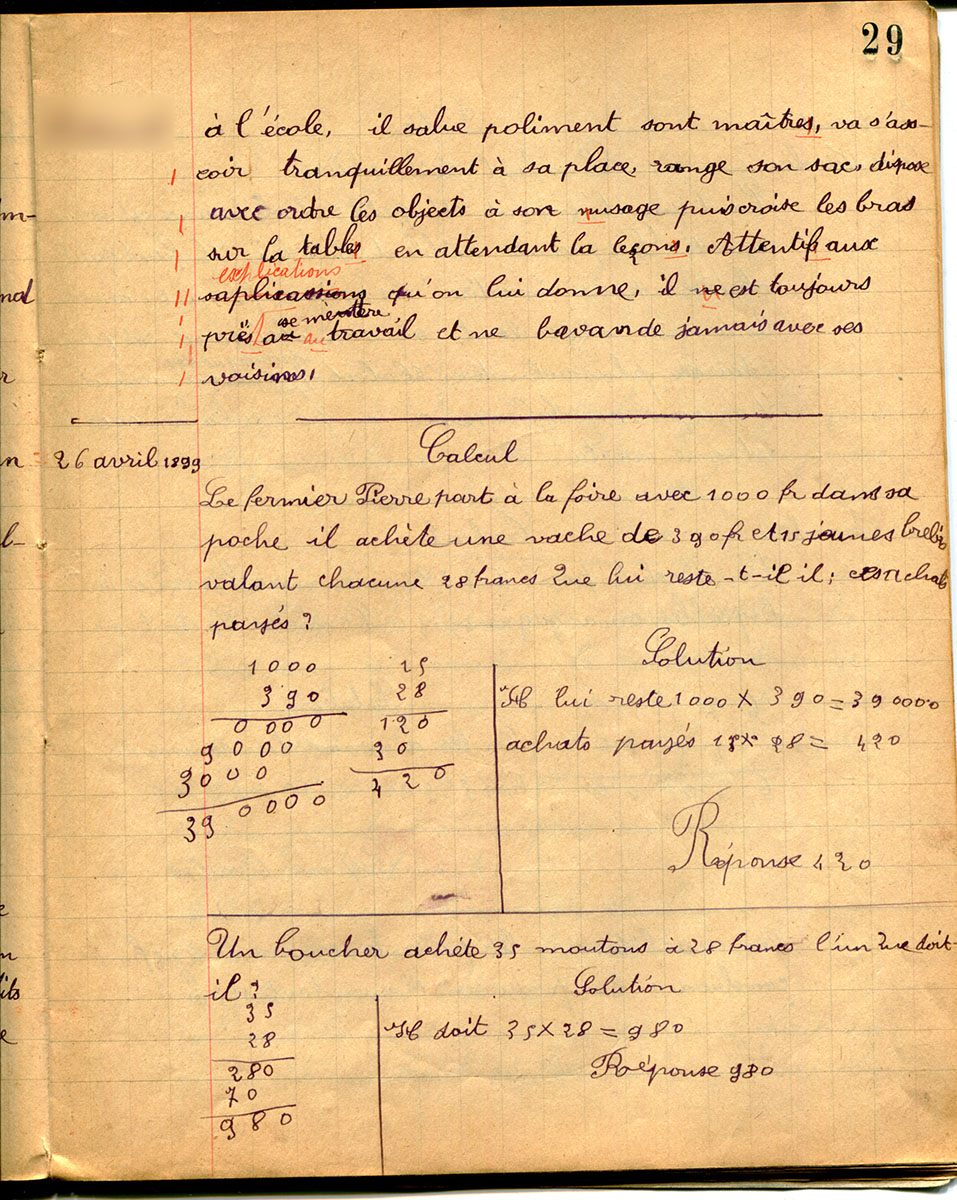 29
à l'école, il salue poliment sont maîtres, va s'as-
coir tranquillement à sa place, range son sac, dispose
avec ordre les objects à son nusage puis croise les bras
sur la tables en attendant la leçons. Attentif aux
explications
saplicassions qu'on lui donne, il ne est toujours
se mettre
près au travail et ne bavande jamais avec ses
voisins.
26 avril 1899
Calcul
Le fermier Pierre part à la foire avec 1000 fr dans sa
poche il achète une vache de 390 fr et 15 jeunes brebis
valant chacune 28 francs Que lui reste-t-il il; ces achats
payés?
1000
390
0000
9000
3000
390000
15
28
120
30
420
Solution
Il lui reste 1000 X 390 = 390000
achats payés 15 x 28 = 420
Réponse 420
Un boucher achète 35 moutons à 28 francs l'un Que doit-
il?
35
28
280
70
980
Solution
Il doit 35 X 28 = 980
Réponse 980
m-
nd
r
n
l-
e
n
its
e